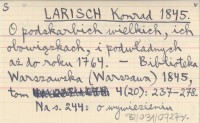 S
LARISCH Konrad 1845.
O podskarbich wielkich, ich
obowiązkach, i podwładnych
aż do roku 1764. – Biblioteka
Warszawska (Warszawa) 1845,
tom 4(20): 237–278.
Na s. 244: o wywiezieniu